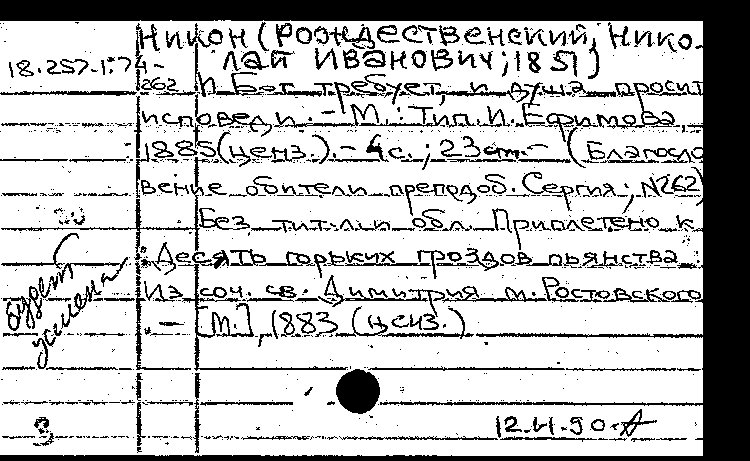 Никон (Рождественский, Нико-
18.257.1:74- лай Иванович; 1851)
262 И Бог требует, и душа просит
исповеди. - М.: Тип. И. Ефимова,
1885 (ценз.). - 4 с.; 23 см. - (Благосло
вение обители преподоб. Сергия; N262)
Без тит. л. и обл. Приплетено к
: Десять горьких гроздов пьянства.
Из соч. св. Димитрия м. Ростовского
. - [М.], 1883 (ценз.)
будет
З